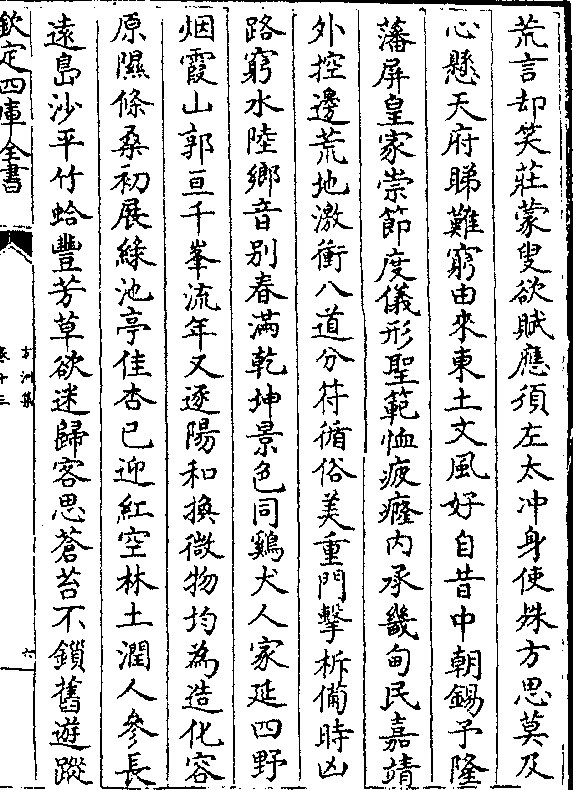 荒言却笑莊蒙叟欲賦應須左太冲身使殊方思莫及
心懸天府睇難窮由來東土文風好自昔中朝錫予隆
藩屏皇家崇節度儀形聖範恤疲癃內承畿甸民嘉靖
外控邊荒地激衝八道分符循俗美重門擊柝備時凶
路窮水陸鄉音別春滿乾坤景色同鷄犬人家延四野
烟霞山郭亘千峯流年又逐陽和換微物均為造化容
原隰條桑初展綠池亭佳杏已迎紅空林土潤人參長
遠島沙平竹蛤豐芳草欲迷歸客思蒼苔不鎖舊遊蹤
欽定四庫全書
方洲集
卷十三
六